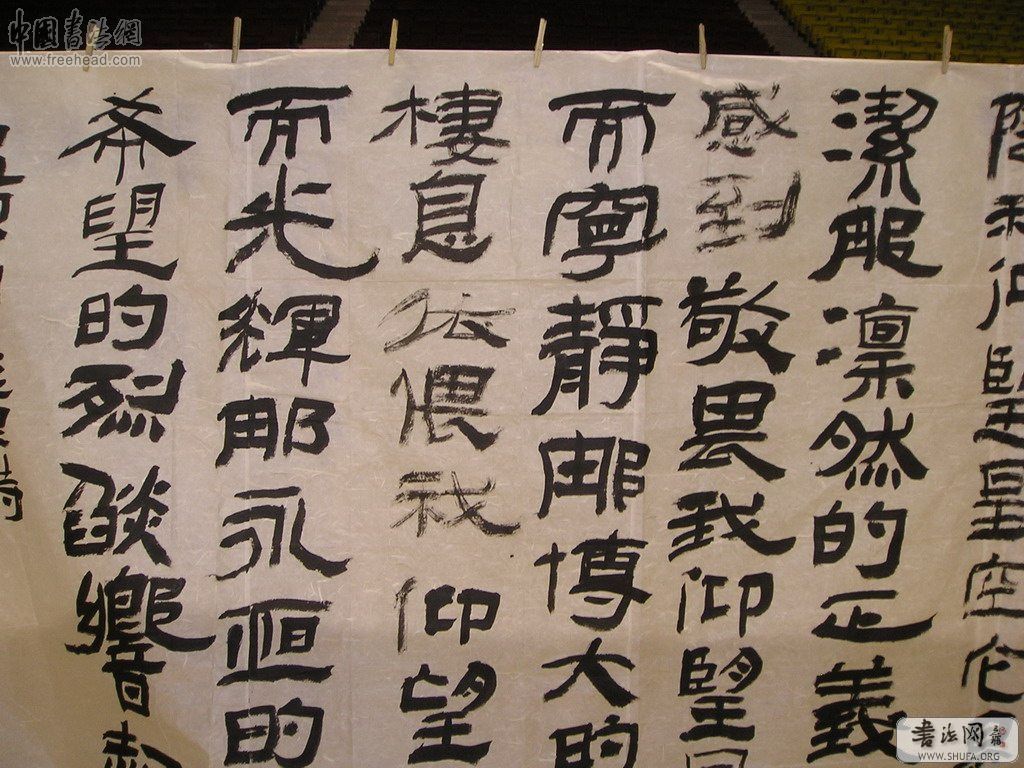 中国书法網
www.freehead.com
仰望星空它
潔那凛然的正義
感到敬畏我仰望
而寧靜那博大的
棲息依偎我仰望
而光輝那永恒的
希望的烈燄響起
书法网
WWW.SHUFA.ORG